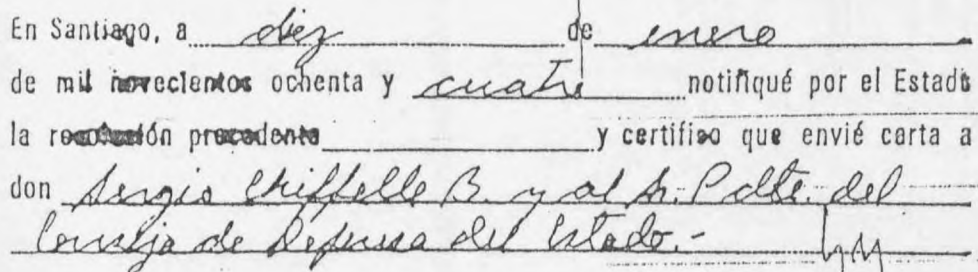 En Santiago, a diez de enero
de mil novecientos ochenta y cuatro notifiqué por el Estado
la resolución precedente y certifico que envié carta a
don Sergio Chiffelle B. y al Sr. Pdte. del
Consejo de Defensa del Estado.-